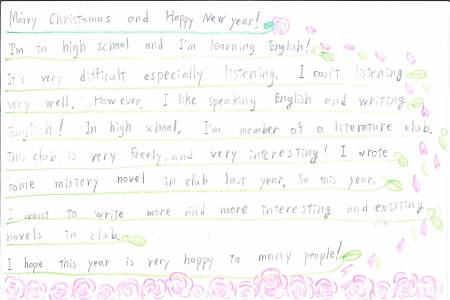 Marry Christomas and Happy New year!
I'm in high school and I'm learning English!
It's very difficult especially listening. I can't listening
very well. However, I like speaking English and writing
English! In high school, I'm member of a literature club.
This club is very freely, and very interesting! I wrote
some mistery novel in club last year. So this year,
I want to write more and more interesting and exciting
novels in club.
I hope this year is very happy to many people!